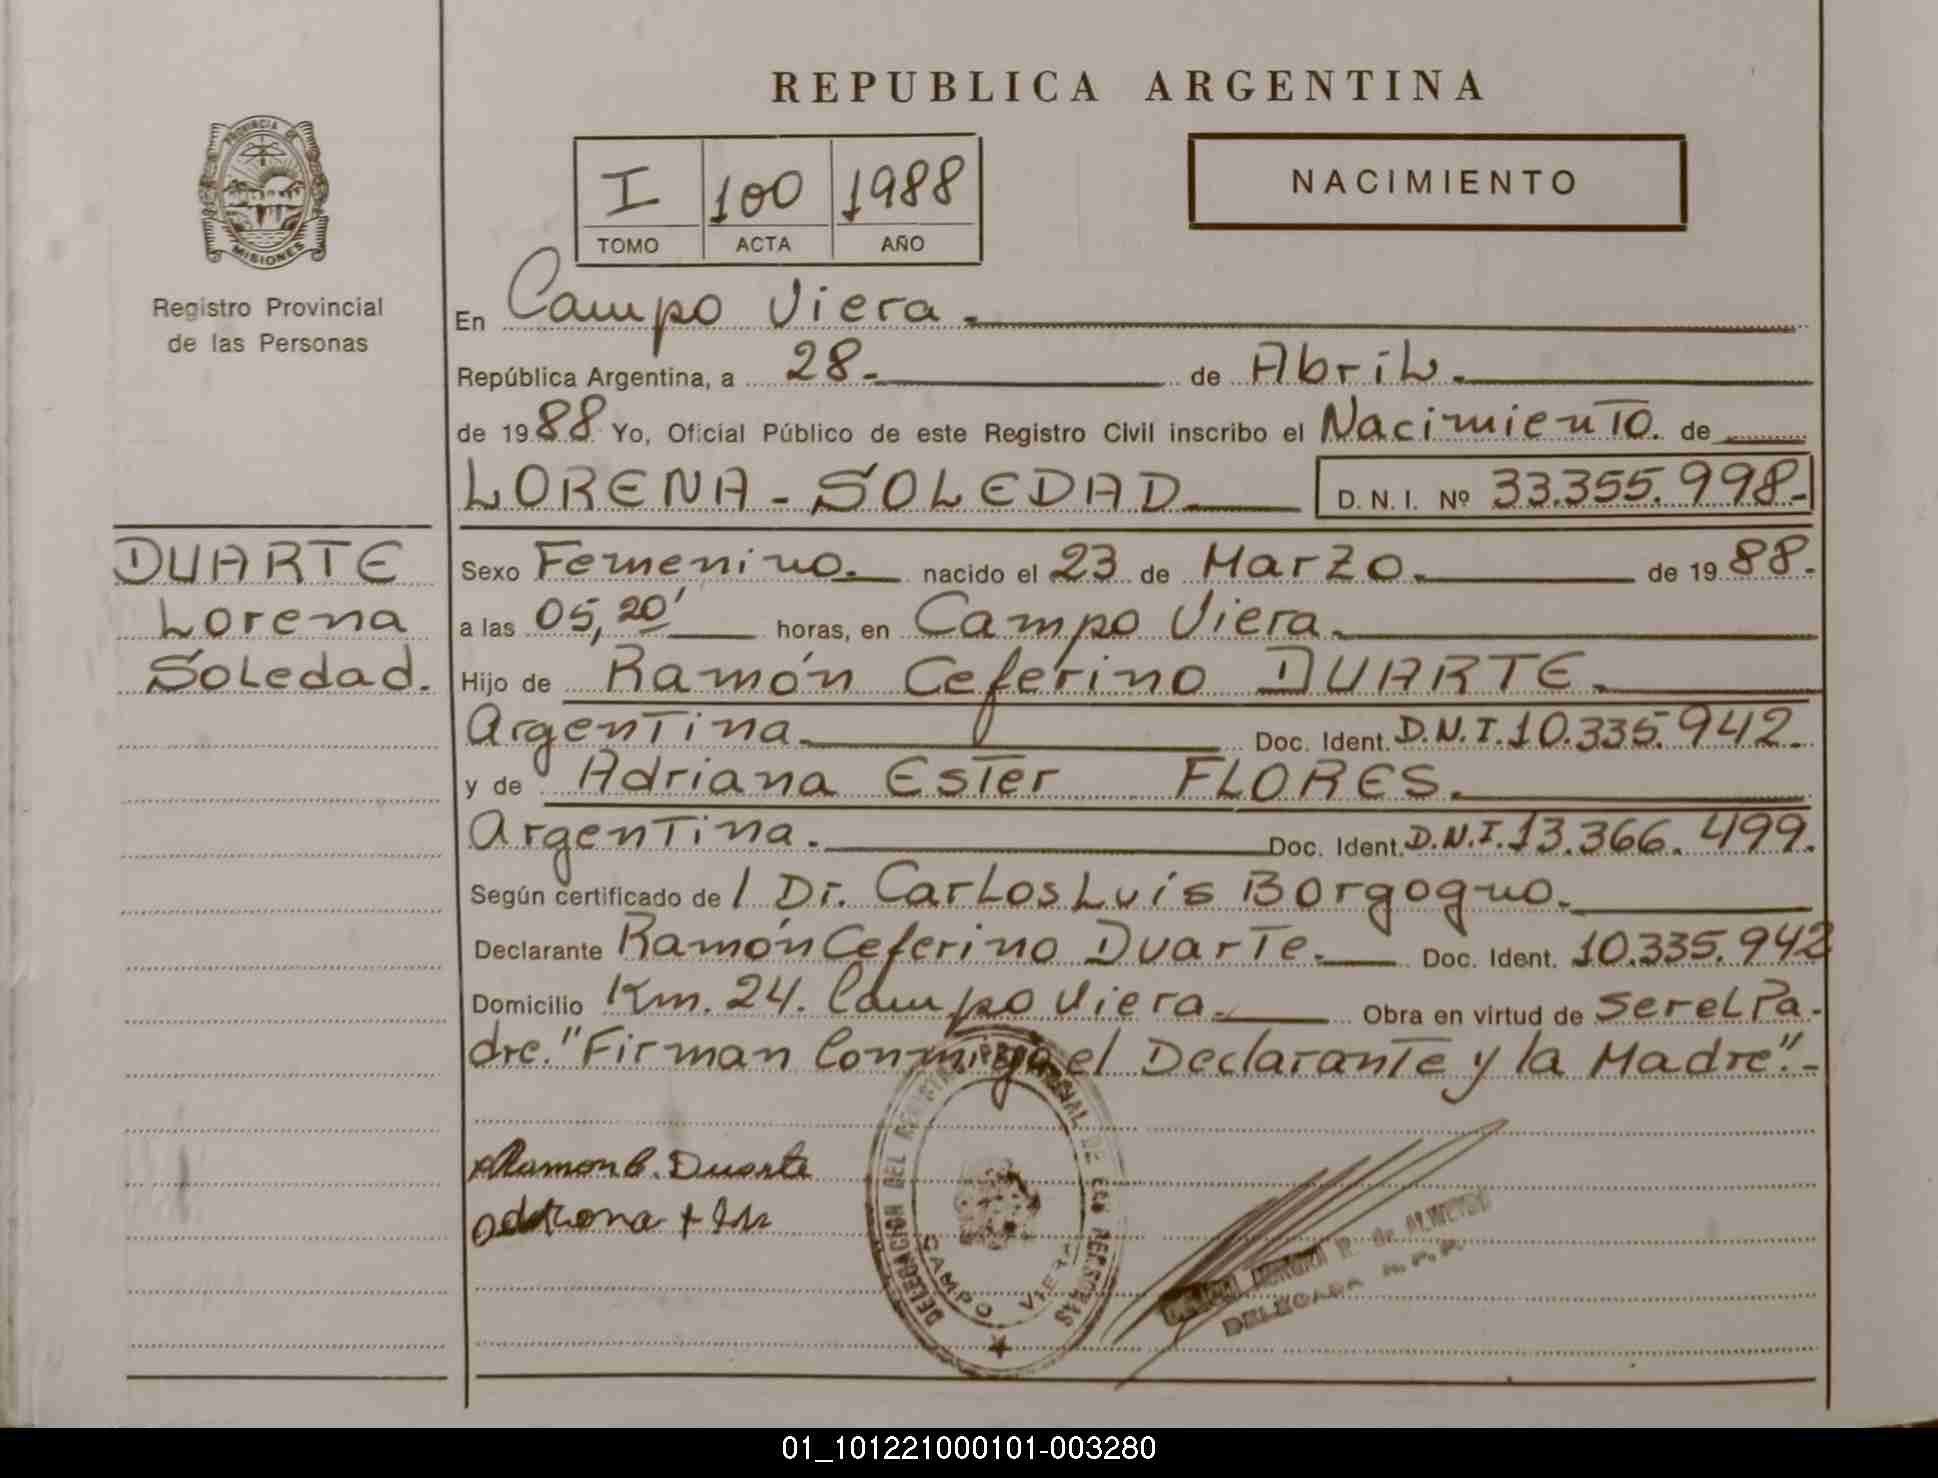 REPUBLICA ARGENTINA
PROVINCIA DE
MISIONES
Registro Provincial
de las Personas
I 100 1988
TOMO ACTA AÑO
NACIMIENTO
En Campo Viera.
República Argentina, a 28. de Abril.
de 1988 Yo, Oficial Público de este Registro Civil inscribo el Nacimiento. de
LORENA - SOLEDAD D. N. I. Nº 33.355.998-
DUARTE
Lorena
Soledad.
Sexo Femenino. nacido el 23 de Marzo. de 1988.
a las 05,20' horas, en Campo Viera.
Hijo de Ramón Ceferino DUARTE.
Argentina. Doc. Ident. D.N.I. 10.335.942.
y de Adriana Ester FLORES.
Argentina. Doc. Ident. D.N.I. 13.366.499.
Según certificado de / Dr. Carlos Luis Borgogno.
Declarante Ramón Ceferino Duarte. Doc. Ident. 10.335.942
Domicilio Km. 24. Campo Viera. Obra en virtud de Ser el Pa-
dre. "Firman Conmigo el Declarante y la Madre".-
Ramon C. Duarte
DELEGACION DEL REGISTRO PROVINCIAL DE LAS PERSONAS
CAMPO VIERA
R. de ALMEIDA
DELEGADA R. P. P.
01_101221000101-003280